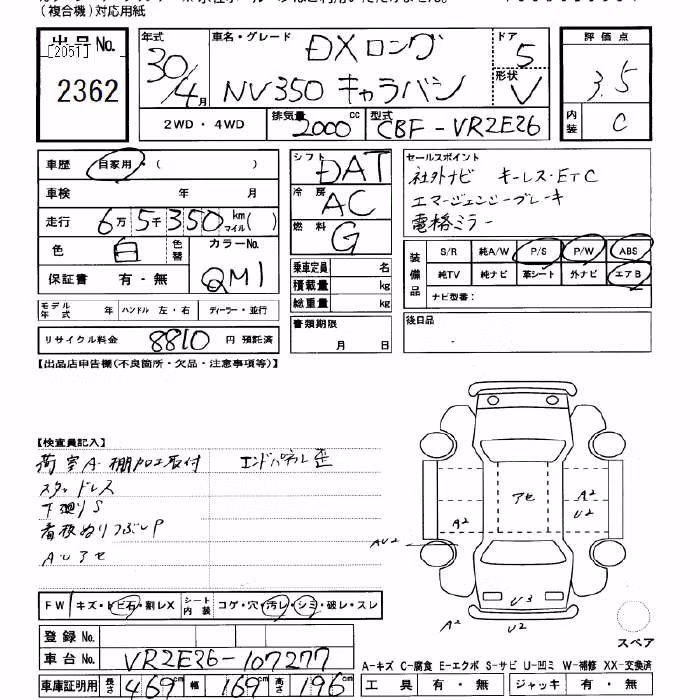 （複合機）対応用紙
出品No. [2051] 2362
年式 30/4月
車名・グレード DXロング NV350 キャラバン
ドア 5
形状 V
評価点 3.5
内装 C
2WD・4WD
排気量 2000cc
型式 CBF-VR2E26
車歴 自家用・（ ）
車検 年 月
走行 6万5千350km マイル( )
色 白 色替 カラーNo. QM1
保証書 有・無
モデル年式 年 ハンドル 左・右 ディーラー・並行
リサイクル料金 8810円 預託済
シフト DAT
冷房 AC
燃料 G
乗車定員 名
積載量 kg
総重量 kg
書類期限 月 日
セールスポイント
社外ナビ キーレス・ETC
エマージェンジーブレーキ
電格ミラー
装備品 S/R 純A/W P/S P/W ABS
純TV 純ナビ 革シート 外ナビ エアB
ナビ型番：
後日品
【出品店申告欄(不良箇所・欠品・注意事項等)】
【検査員記入】
荷室A・棚加工取付 エンドパネル歪
スタッドレス
下廻りS
看板ぬりつぶしP
AUアセ
アセ
A2
U2
A2
AU2
U3
A2
U2
スペア
FW キズ・トビ石・割レX シート内装 コゲ・穴・汚レ・シミ・破レ・スレ
登録No.
車台No. VR2E26-107277
車庫証明用 長さ 469cm 幅 169cm 高さ 196cm
A-キズ C-腐食 E-エクボ S-サビ U-凹ミ W-補修 XX-交換済
工具 有・無 ジャッキ 有・無